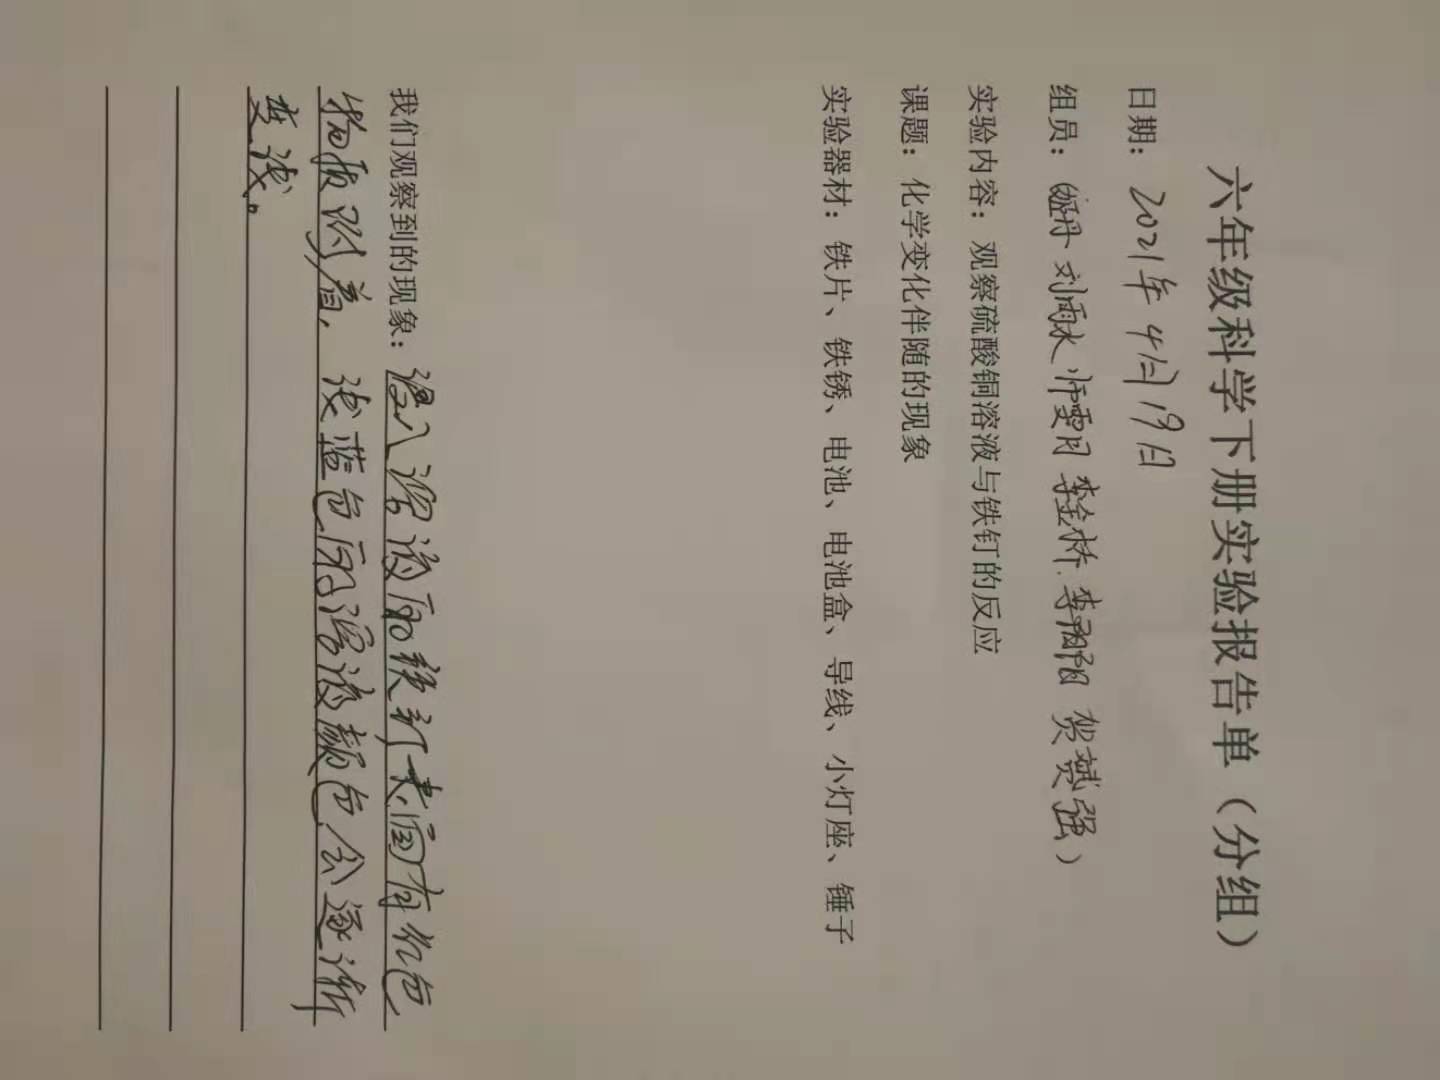 六年级科学下册实验报告单（分组）
日期：2021年4月19日
组员：丹 刘雨水 李金桥 李阳 贺斌强）
实验内容：观察硫酸铜溶液与铁钉的反应
课题：化学变化伴随的现象
实验器材：铁片、铁锈、电池、电池盒、导线、小灯座、锤子
我们观察到的现象：浸入溶液的铁钉表面有红色
物质附着，浅蓝色的溶液颜色会逐渐
变浅。